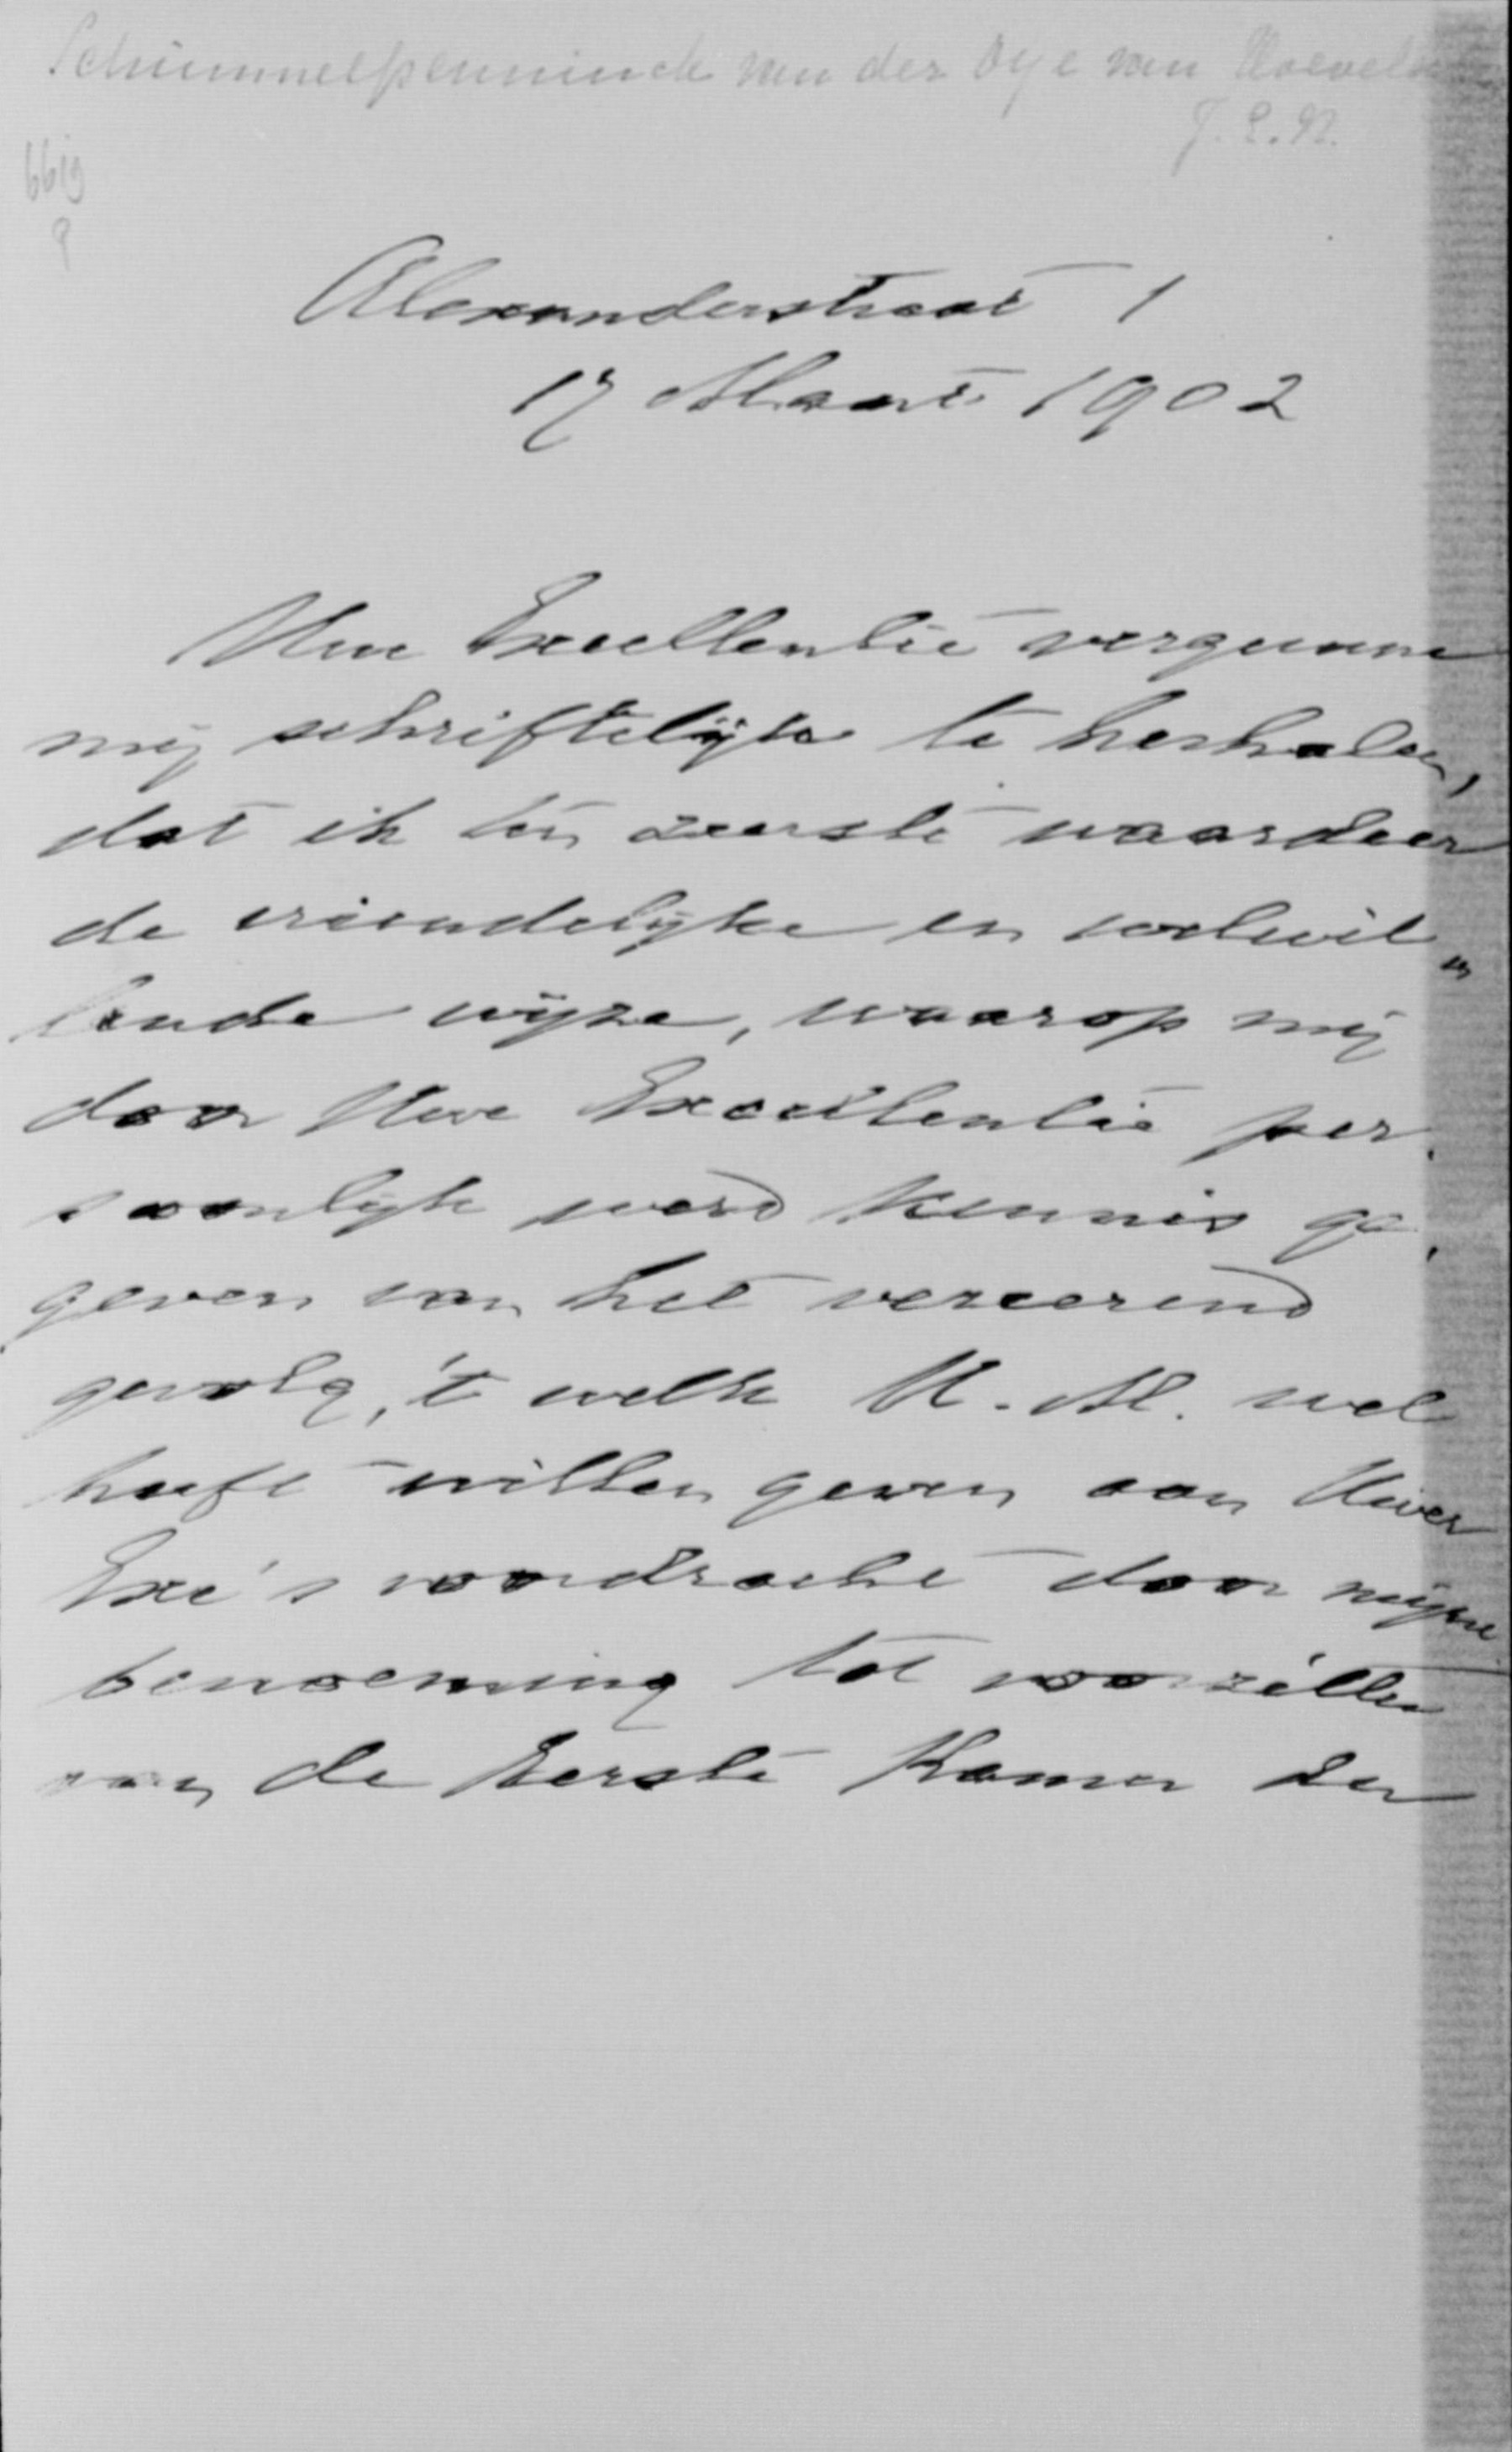 Schimmelpenninck van der Oye van Hoevela
J. E. N.
6619
9
Alexanderstraat 1
17 Maart 1902
Uwe Excellentie vergunne
mij schriftelijk te herhalen,
dat ik ten zeerste waardeer
de vriendelijke en welwil„
lende wijze, waarop mij
door Uwe Excellentie per„
soonlijk werd kennis ge„
geven van het vereerend
gevolg, 't welk H. M. wel
heeft willen geven aan Uwer
Exc's voordracht door mijne
benoeming tot voorzitter
van de Eerste Kamer der